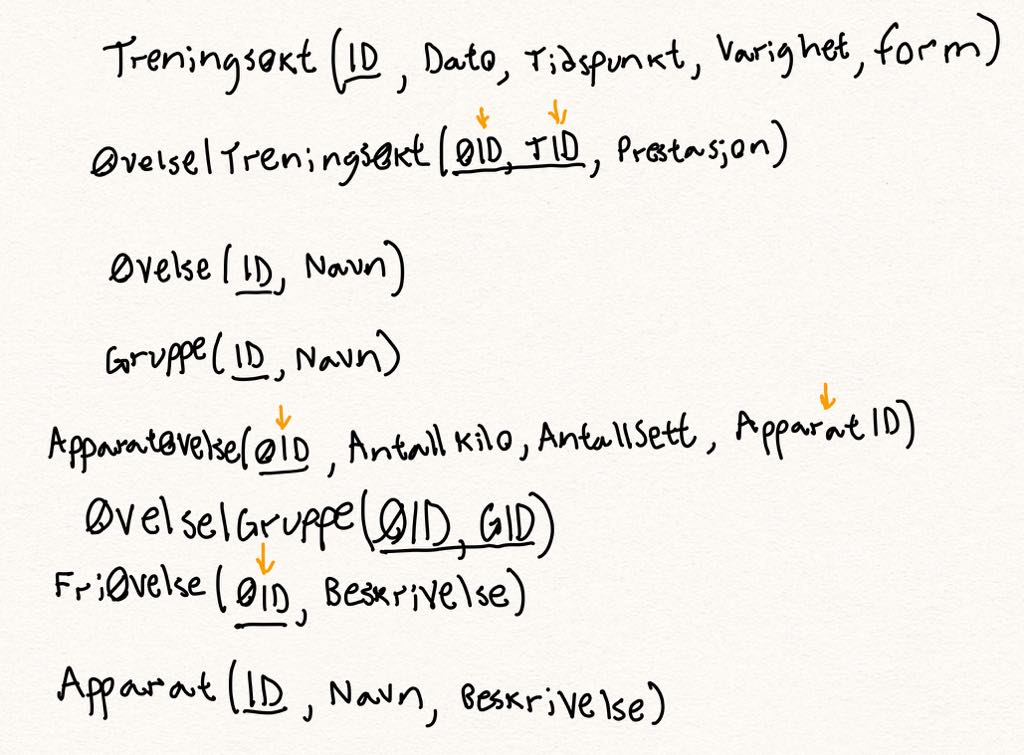 Treningsøkt (ID, Dato, Tidspunkt, Varighet, form)
ØvelseITreningsøkt(ØID, TID, Prestasjon)
Øvelse(ID, Navn)
Gruppe(ID, Navn)
ApparatØvelse(ØID, Antall kilo, AntallSett, ApparatID)
ØvelseIGruppe(ØID, GID)
FriØvelse(ØID, Beskrivelse)
Apparat(ID, Navn, Beskrivelse)